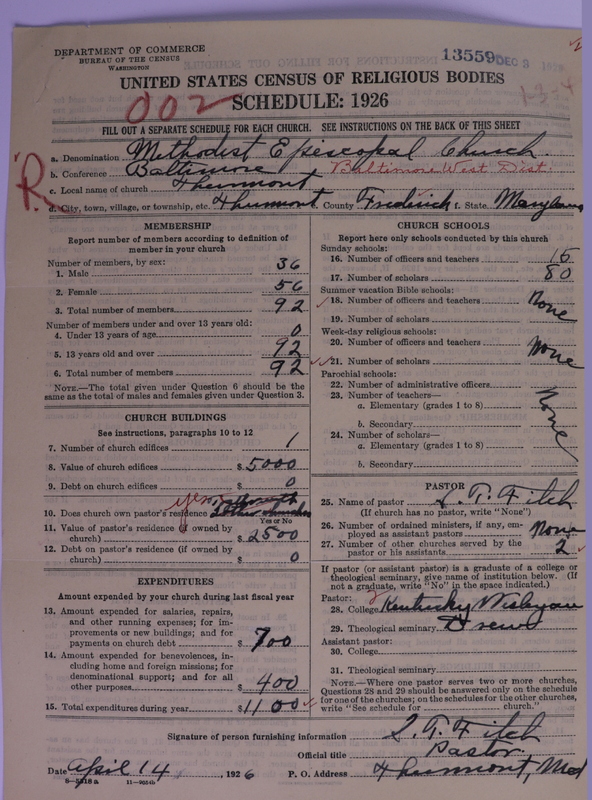 DEPARTMENT OF COMMERCE
BUREAU OF THE CENSUS
WASHINGTON
13559 DEC 3
UNITED STATES CENSUS OF RELIGIOUS BODIES
002
SCHEDULE: 1926
1-3-4
FILL OUT A SEPARATE SCHEDULE FOR EACH CHURCH. SEE INSTRUCTIONS ON THE BACK OF THIS SHEET
R
a. Denomination Methodist Episcopal Church
b. Conference Baltimore Baltimore West Dist.
c. Local name of church Thurmont
d. City, town, village, or township, etc. Thurmont e. County Frederick f. State Maryland
MEMBERSHIP
Report number of members according to definition of
member in your church
Number of members, by sex:
1. Male 36
2. Female 56
3. Total number of members 92
Number of members under and over 13 years old:
4. Under 13 years of age 0
5. 13 years old and over 92
6. Total number of members 92
NOTE.—The total given under Question 6 should be
same as the total of males and females given under Question 3.
CHURCH BUILDINGS
See instructions, paragraphs 10 to 12
7. Number of church edifices 1
8. Value of church edifices $ 5000
9. Debt on church edifices $ 0
yes
10. Does church own pastor's residence
Yes or No
11. Value of pastor's residence (if owned by
church) $ 2500
12. Debt on pastor's residence (if owned by
church) $ 0
EXPENDITURES
Amount expended by your church during last fiscal year
13. Amount expended for salaries, repairs,
and other running expenses; for im-
provements or new buildings; and for
payments on church debt $ 700
14. Amount expended for benevolences, in-
cluding home and foreign missions; for
denominational support; and for all
other purposes $ 400
15. Total expenditures during year $ 1100
CHURCH SCHOOLS
Report here only schools conducted by this church
Sunday schools:
16. Number of officers and teachers 15
17. Number of scholars 80
Summer vacation Bible schools:
18. Number of officers and teachers None
19. Number of scholars
Week-day religious schools:
20. Number of officers and teachers None
21. Number of scholars
Parochial schools:
22. Number of administrative officers
23. Number of teachers—
a. Elementary (grades 1 to 8) None
b. Secondary
24. Number of scholars—
a. Elementary (grades 1 to 8)
b. Secondary
PASTOR
25. Name of pastor S. R. Fitch
(If church has no pastor, write "None")
26. Number of ordained ministers, if any, em-
ployed as assistant pastors None
27. Number of other churches served by the
pastor or his assistants 2
If pastor (or assistant pastor) is a graduate of a college or
theological seminary, give name of institution below. (If
not a graduate, write "No" in the space indicated.)
Pastor:
28. College Kentucky Wesleyan
29. Theological seminary Drew
Assistant pastor:
30. College
31. Theological seminary
NOTE.—Where one pastor serves two or more churches,
Questions 28 and 29 should be answered only on the schedule
for one of the churches; on the schedules for the other churches,
write "See schedule for church."
Signature of person furnishing information S. R. Fitch
Official title Pastor
Date April 14, 1926 P. O. Address Thurmont, Md
8-5818 a 11-7664b